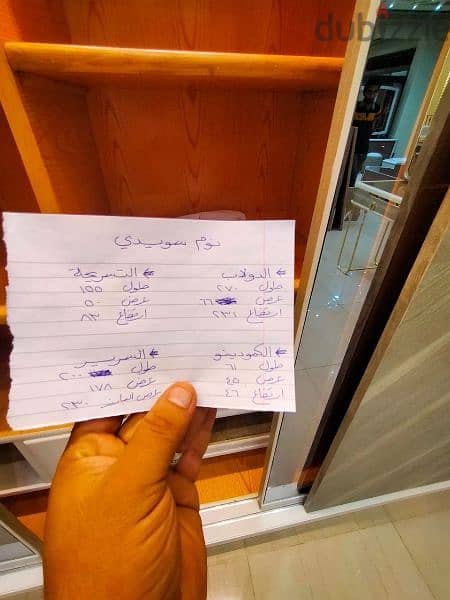 dubizzle
نوم سويدي
← الدولاب
طول ٢٧٠
عرض ٦٦
ارتفاع ٢٣١
← التسريحة
طول ١٥٥
عرض ٥٠
ارتفاع ٨٣
← الكمودينو
طول ٦١
عرض ٤٥
ارتفاع ٤٦
← السرير
طول ٢٠٠
عرض ١٧٨
عرض ٢٣٠